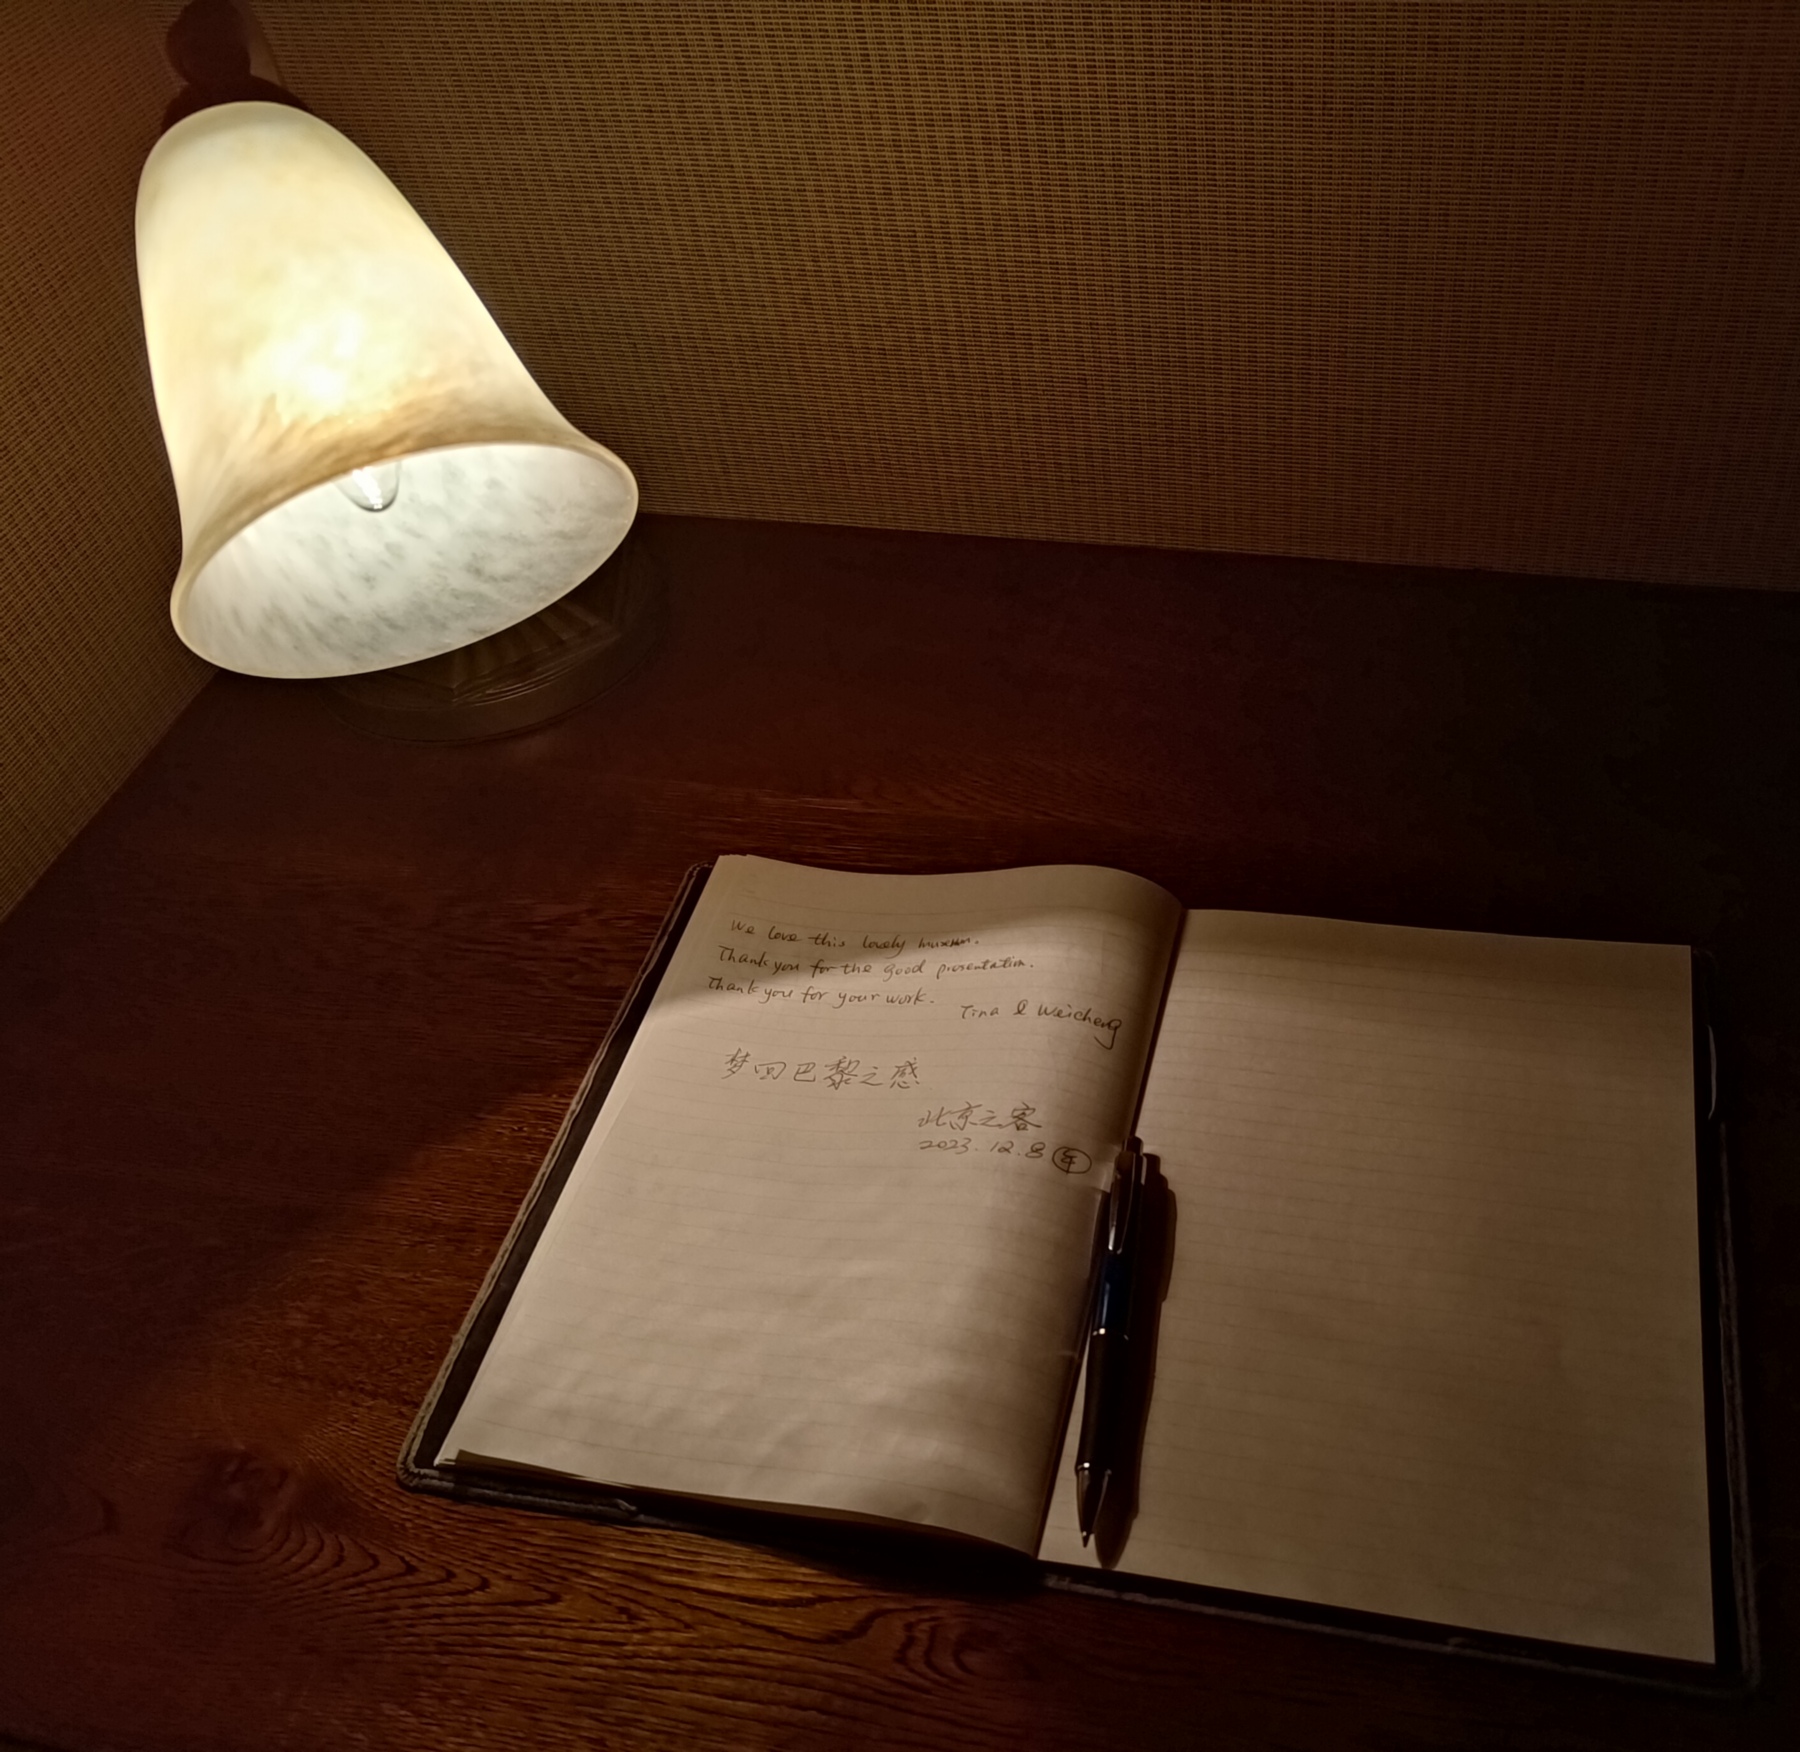 We love this lovely museum.
Thank you for the good presentation.
Thank you for your work.
Tina & Weicheng
梦回巴黎之感
北京之客
2023.12.8